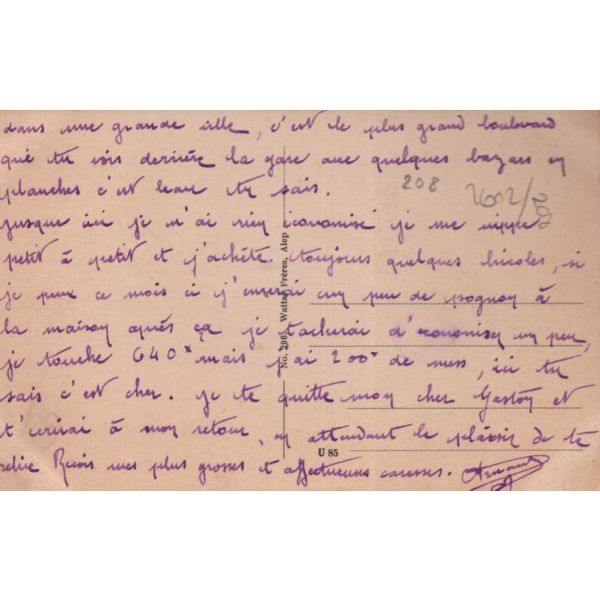 dans une grande ville, c'est le plus grand boulevard
que tu vois derrière la gare avec quelques bazars en
planches c'est beau tu sais.
208
2602/
jusque ici je n'ai rien économisé je me nippe
petit à petit et j'achète toujours quelques bricoles, si
je peux ce mois ci j'enverai un peu de pognon à
la maison après ça je tacherai d'economiser un peu,
je touche 640 mais j'ai 200 de mess, ici tu
sais c'est cher. je te quitte mon cher Gaston et
t'ecrirai à mon retour, en attendant le plaisir de te
relire Reçois mes plus grosses et affectueuses caresses. Armand
No. 296, Wattar Frères, Alep
U 85